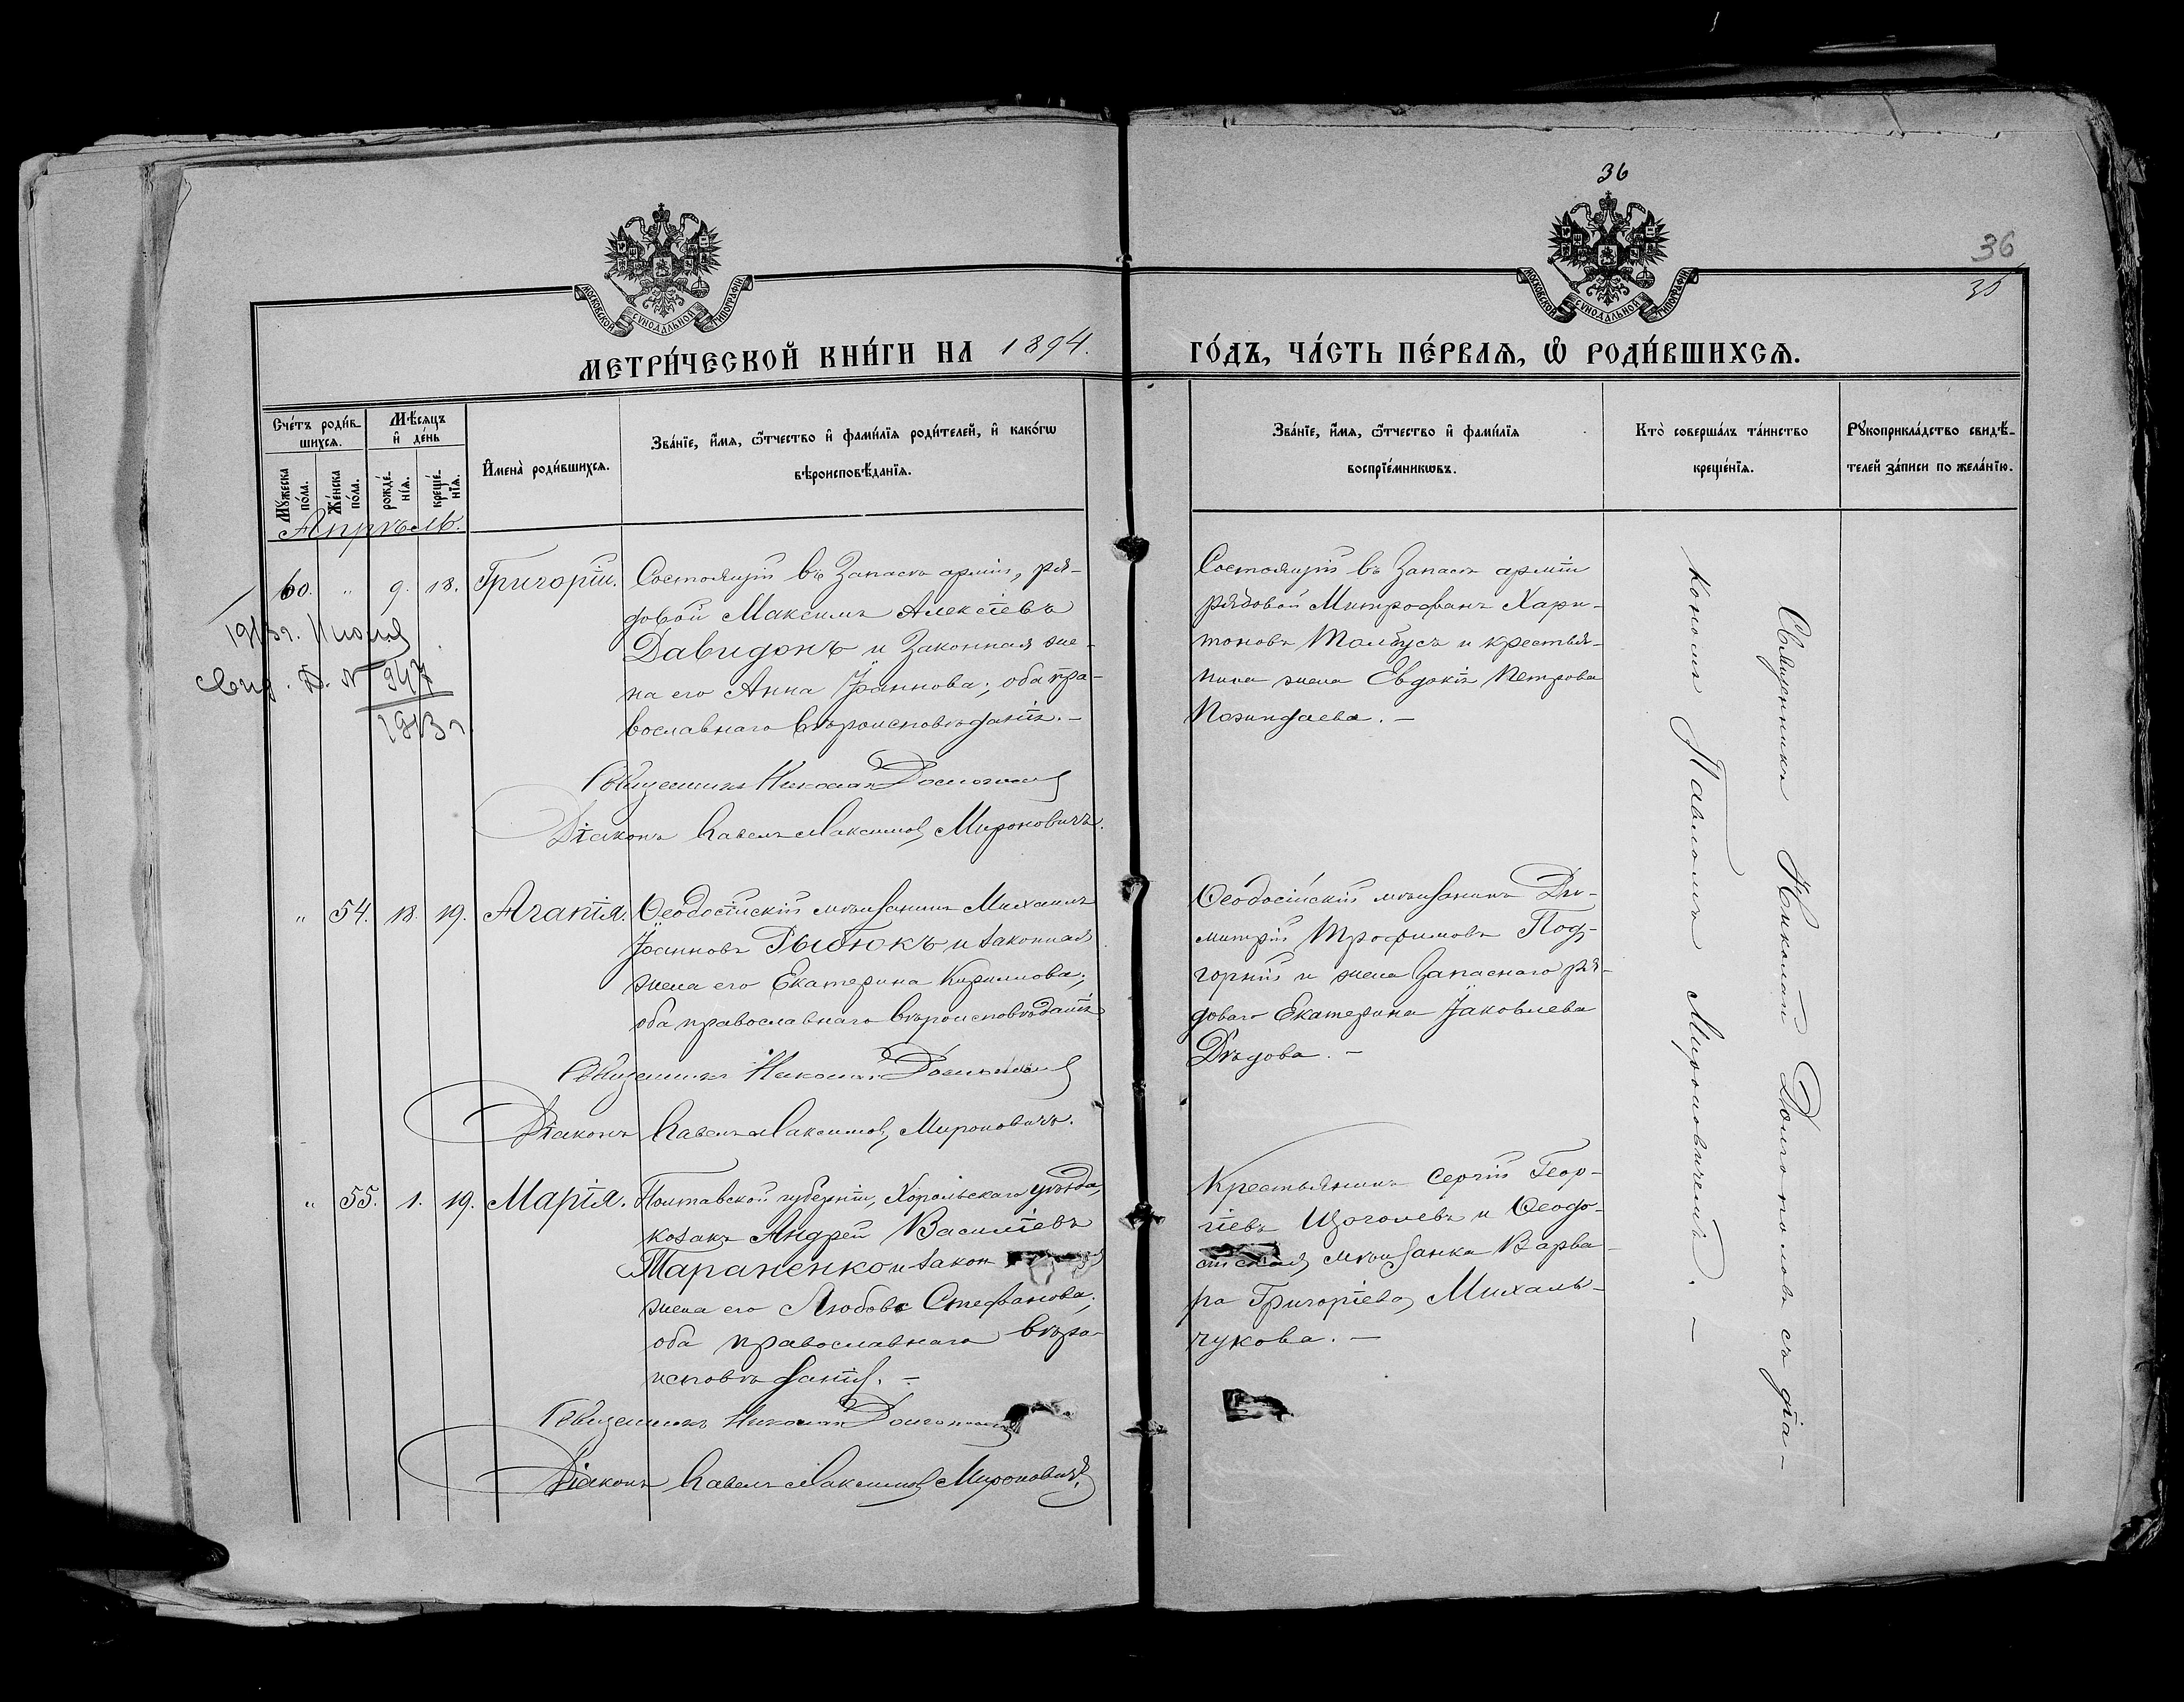 36
36
35
МОСКОВСКОЙ СѴНОДАЛЬНОЙ ТИПОГРАФІИ
МОСКОВСКОЙ СѴНОДАЛЬНОЙ ТИПОГРАФІИ
МЕТРИ́ЧЕСКОЙ КНИ́ГИ НА 1894.
ГО́ДЪ, ЧА́СТЬ ПЕ́РВАѦ, Ѡ҆ РОДИ́ВШИХСѦ.
Сче́тъ роди́в-
шихсѧ.
Мꙋ́жеска по́ла.
Же́нска по́ла.
Мѣ́сѧцъ
и҆ де́нь
рожде́-
нїѧ.
креще́-
нїѧ.
И҆мена̀ роди́вшихсѧ.
Зва́нїе, и҆́мѧ, ѻ҆́тчество и҆ фами́лїѧ роди́телей, и҆ како́гѡ
вѣроисповѣ́данїѧ.
Зва́нїе, и҆́мѧ, ѻ҆́тчество и҆ фами́лїѧ
воспрїе́мникѡвъ.
Кто̀ соверша́лъ та́инство
креще́нїѧ.
Рꙋкоприкла́дство свидѣ́-
телей за́писи по жела́нїю.
Апрѣль.
60. " 9. 18. Григорій.
Состоящій въ Запасѣ арміи, ря-
довой Максимъ Алексіевъ
Давидонъ и Законная же-
на его Анна Іоаннова; оба пра-
вославнаго вѣроисповѣданія. –
1913 г. Іюля
свид. №
947
1913 г
Священникъ Николай Долгополовъ
Діаконъ Павелъ Максимовъ Мироновичъ.
Состоящій въ Запасѣ арміи
рядовой Митрофанъ Хари-
тоновъ Толбусъ и крестья-
нина жена Евдокія Петрова
" 54. 18. 19. Агапія.
Ѳеодосійскій мѣщанинъ Михаилъ
Іоанновъ Рыбюкъ и законная
жена его Екатерина Кириллова;
оба православнаго вѣроисповѣданія
Священникъ Николай Долгополовъ
Діаконъ Павелъ Максимовъ Мироновичъ.
Ѳеодосійскій мѣщанинъ Ди-
митрій Трофимовъ Под-
горній и жена Запаснаго ря-
доваго Екатерина Іаковлева
Дѣдова. –
" 55. 1. 19. Марія.
Полтавской губерніи, Хорольскаго уѣзда,
козакъ Андрей Василіевъ
Тараненко и закон
жена его Любовь Стефанова;
оба православнаго вѣро-
исповѣданія. –
Священникъ Николай Долгополовъ
Діаконъ Павелъ Максимовъ Мироновичъ.
Крестьянинъ Сергій Геор-
гіевъ Щоголевъ и Ѳеодо-
сійская мѣщанка Варва-
ра Григоріева Михаль-
чукова. –
Священникъ Николай Долгополовъ съ діа-
кономъ Павломъ Мироновичемъ. –